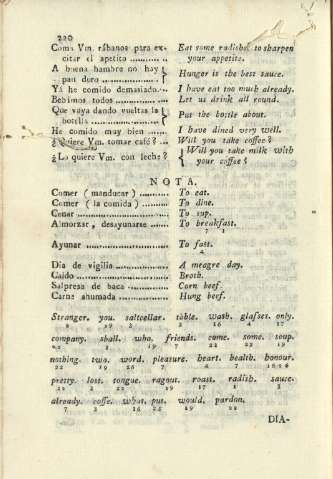 220
Coma Vm. rábanos para ex- Eat some radishes to sharpen
citar el apetito ............ your appetite.
A buena hambre no hay
pan duro ................... Hunger is the best sauce.
Yá he comido demasiado... I have eat too much already.
Bebamos todos .............. Let us drink all round.
Que vaya dando vueltas la
botella ..................... Put the bottle about.
He comido muy bien ........ I have dined very well.
¿ Quiere Vm. tomar café ? ... Will you take coffee ?
¿ Lo quiere Vm. con leche ? Will you take milk with
your coffee ?
NOTA.
Comer ( manducar ) ............ To eat.
Comer ( la comida ) ............ To dine.
Cenar ............................ To sup.
Almorzar , desayunarse ........ To breakfast.
Ayunar ........................... To fast.
Dia de vigilia .................... A meagre day.
Caldo ............................. Broth.
Salpresa de baca ................ Corn beef.
Carne ahumada .................. Hung beef.
Stranger. you. saltcellar. table. wash. glasses. only.
company. shall. who. friends. come. some. soup.
nothing. two. word. pleasure. heart. health. honour.
pretty. lost. tongue. ragout. roast. radish. sauce.
already. coffe. what. put. would. pardon.
DIA-